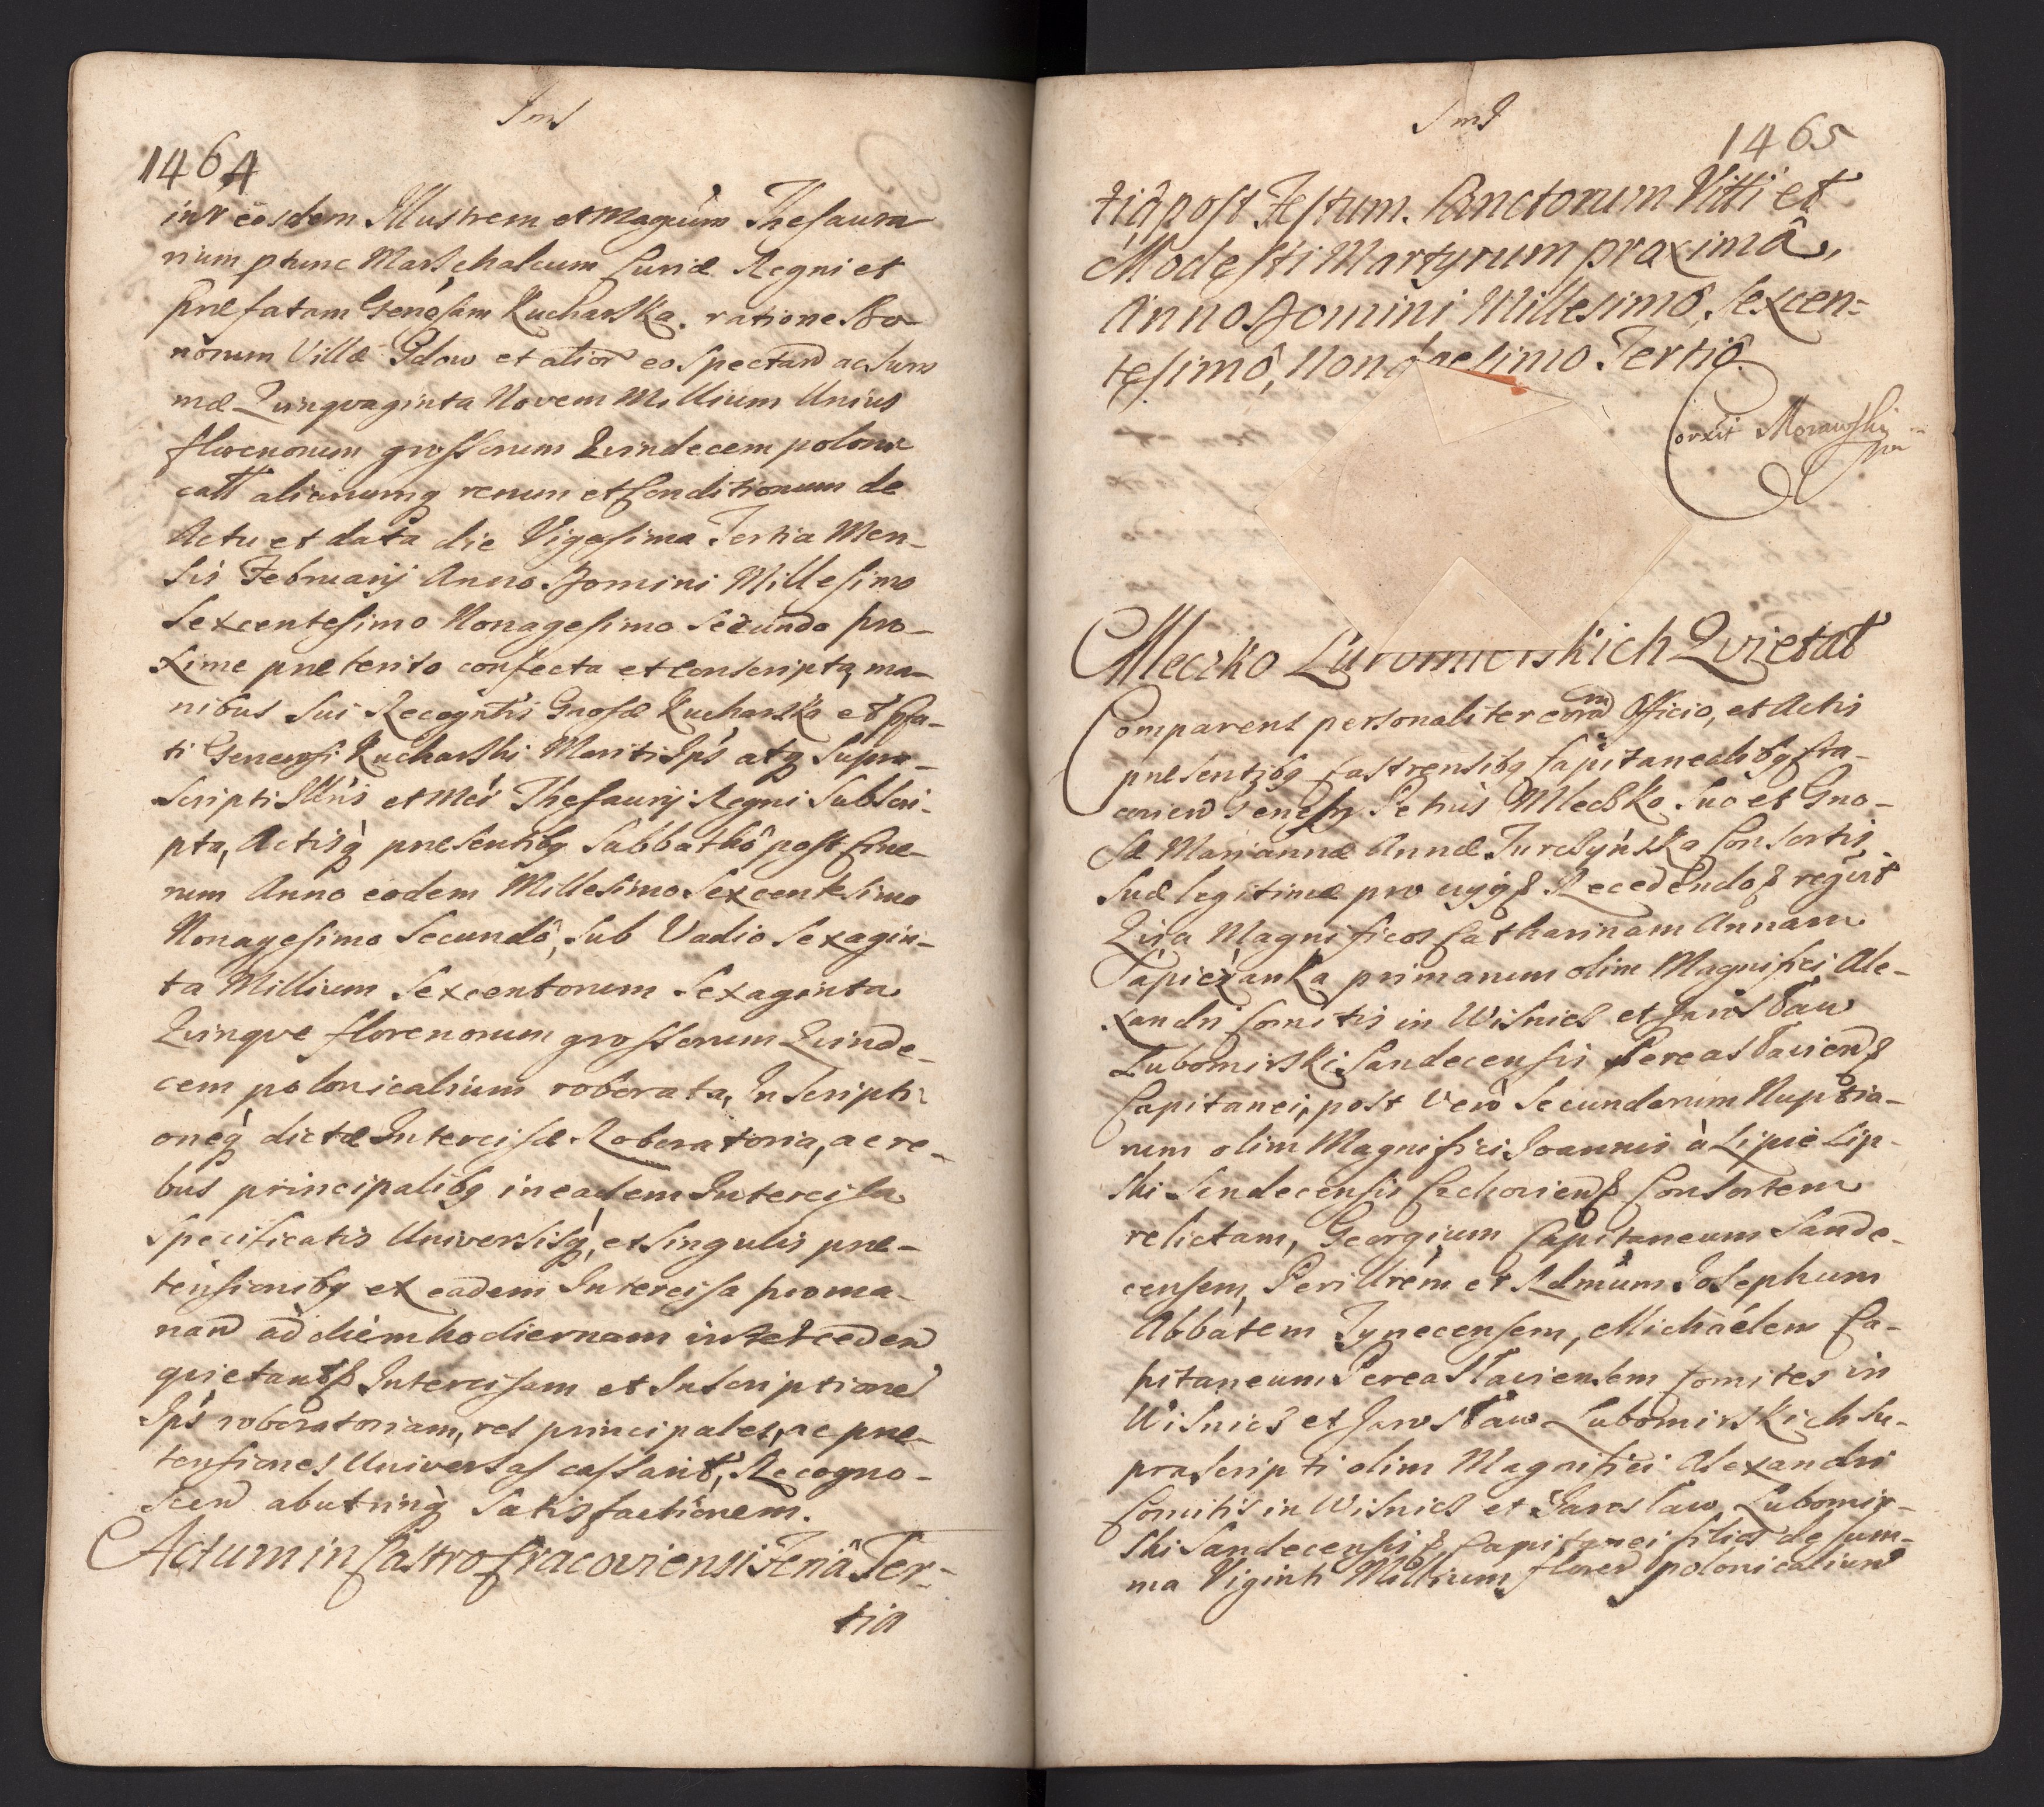 Jms
1464
intr eosdem Illustrem et Magcum Thesaura
rium ptunc Marschalcum Curiæ Regni et
præfatam Gene͠sam Kucharska. ratione Bo-
norum Villæ Gdow et alior eo spectand ac Sum
mæ Quinqvaginta Novem Millium Unius
florenorum grossorum Quindecem poloni
call aliarumq rerum et Conditionum de
Actu et data die Vigesima Tertia Men-
sis Februarij Anno Domini Millesimo
Sexcentesimo Nonagesimo Secundo pro-
xime præterito confecta et conscripta, ma-
nibus sui Recogntis Gnosæ Kucharska et pfa-
ti Generosi Kucharski Mariti Ips atq supra-
scripti Illris et Mci Thesaurij Regni Subscri-
pta, Actisq præsentibg Sabbathô post Cine-
rum Anno eodem Millesimo Sexcentesimo
Nonagesimo Secundô, Sub Vadio Sexagin-
ta Millium Sexcentorum Sexaginta
Quinqve florenorum grossorum Quinde-
cem polonicalium roborata, Inscripti-
oneq dictæ Intercisæ Roboratoria, ac re-
bus principalibg in eadem Intercisa
specificatis Universisq, et singulis præ-
tensionibg ex eadem Intercisa proma-
nand ad diem hodiernam interceden
quietant Intercisam et Inscriptione
Ips roboratoriam, res principales, ac præ-
tensiones Universas cassant, Recogno-
scen ab utrinq Satisfactionem.
Actum in Castro Cracoviensi Feriâ Ter-
tia
Jms
1465
tiâ post Festum Sanctorum Vitti et
Modesti Martyrum proximâ,
Anno Domini Millesimô, Sexcen-
tesimô, Nonagesimo Tertiô.
Corxit Morawski
mp
Mleczko Lubomirskich Qvietat
Comparens personaliter coram Officio, et Actis
præsentibg Castrensibg Capitanealibg Cra-
covien Gensg Petrus Mleczko Suo et Gno-
sæ Mariannæ Annæ Turczynska Consortis
Suæ legitimæ pro cujg Recedendo regvit
Qvia Magnificos Catharinam Annam
Sapiezanka primarum olim Magnifici Ale-
xandri Comitis in Wisnicz et Jarosław
Lubomirski Sandecensis Pereasławien
Capitanei, post vero Secundarum Nuptia-
rum olim Magnifici Joannis à Lipie Lip-
ski Sendecensis Czchovien Consortem
relictam, Georgium Capitaneum Sande-
censem, Perillrem et Rdmum Josephum
Abbatem Tynecensem, Michaëlem Ca-
pitaneum Pereasłaviensem Comites in
Wisnicz et Jarosław Lubomirskich su-
prascripti olim Magnifici Alexandri
Comitis in Wisnicz et Jarosław Lubomir-
ski Sandecensis Capitanei filios de sum-
ma Viginti Millium floren polonicalium